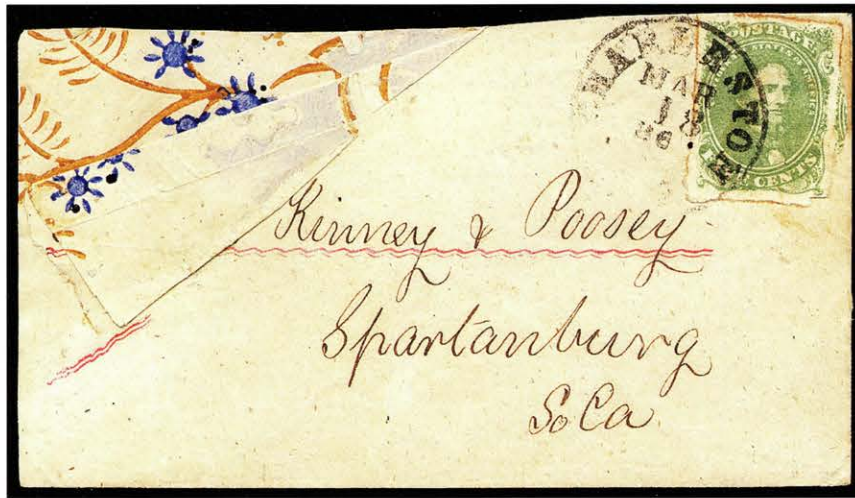 CHARLESTON
MAR
18
POSTAGE
CENTS
Kinney & Poosey
Spartanburg
So Ca